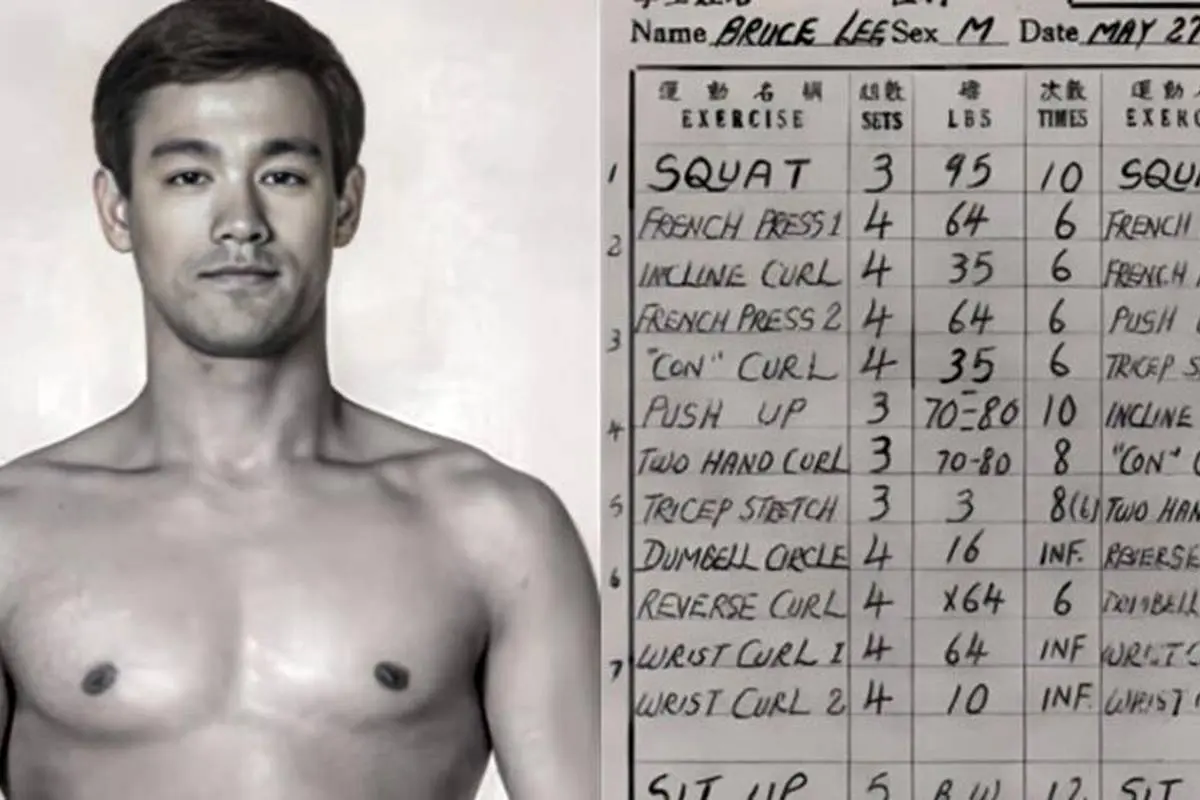 Name BRUCE LEE Sex M Date MAY 27
運動名稱 組數 磅 次數 運動
EXERCISE SETS LBS TIMES EXERC
1 SQUAT 3 95 10 SQU
2 FRENCH PRESS 1 4 64 6 FRENCH
INCLINE CURL 4 35 6 FRENCH
3 FRENCH PRESS 2 4 64 6 PUSH
"CON" CURL 4 35 6 TRICEP S
4 PUSH UP 3 70-80 10 INCLINE
TWO HAND CURL 3 70-80 8 "CON" C
5 TRICEP STRETCH 3 3 8(6) TWO HAN
DUMBELL CIRCLE 4 16 INF. REVERSE
6 REVERSE CURL 4 X64 6 DUMBELL
7 WRIST CURL 1 4 64 INF WRIST C
WRIST CURL 2 4 10 INF. WRIST
SIT UP 5 B.W 12 SIT